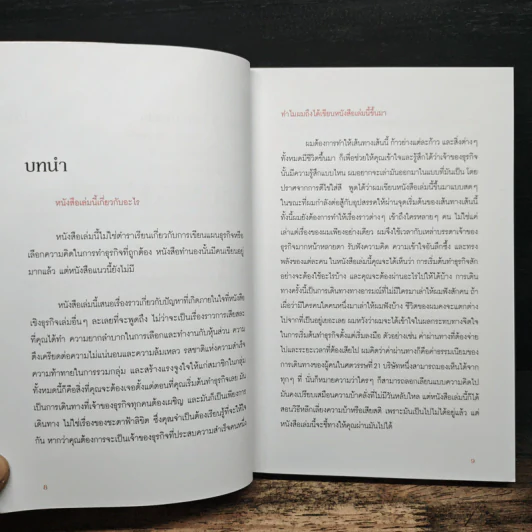 บทนำ
หนังสือเล่มนี้เกี่ยวกับอะไร
หนังสือเล่มนี้ไม่ใช่ตำราเรียนเกี่ยวกับการเขียนแผนธุรกิจหรือ
เลือกความคิดในการทำธุรกิจที่ถูกต้อง หนังสือทำนองนั้นมีคนเขียนอยู่
มากแล้ว แต่หนังสือแนวนี้ยังไม่มี
หนังสือเล่มนี้เสนอเรื่องราวเกี่ยวกับปัญหาที่เกิดภายในใจที่หนังสือ
เชิงธุรกิจเล่มอื่นๆ ละเลยที่จะพูดถึง ไม่ว่าจะเป็นเรื่องราวการเสียสละ
ที่คุณได้ทำ ความยากลำบากในการเลือกและทำงานกับหุ้นส่วน ความ
ตึงเครียดต่อความไม่แน่นอนและความล้มเหลว รสชาติแห่งความสำเร็จ
ความท้าทายในการรวมกลุ่ม และสร้างแรงจูงใจให้แก่สมาชิกในกลุ่ม
ทั้งหมดนี้ก็คือสิ่งที่คุณจะต้องเจอตั้งแต่ตอนที่คุณเริ่มต้นทำธุรกิจเลย มัน
เป็นการเดินทางที่เจ้าของธุรกิจทุกคนต้องเผชิญ และมันก็เป็นเพียงการ
เดินทาง ไม่ใช่เรื่องของชะตาฟ้าลิขิต ซึ่งคุณจำเป็นต้องเรียนรู้ที่จะใส่ใจ
กัน หากว่าคุณต้องการจะเป็นเจ้าของธุรกิจที่ประสบความสำเร็จคนหนึ่ง
๘
ทำไมผมถึงได้เขียนหนังสือเล่มนี้ขึ้นมา
ผมต้องการทำให้เส้นทางเส้นนี้ ก้าวย่างแต่ละก้าว และสิ่งต่างๆ
ทั้งหมดมีชีวิตขึ้นมา ก็เพื่อช่วยให้คุณเข้าใจและรู้สึกได้ว่าเจ้าของธุรกิจ
นั้นมีความรู้สึกแบบไหน ผมอยากจะเล่ามันออกมาในแบบที่มันเป็น โดย
ปราศจากการตีไข่ใส่สี พูดได้ว่าผมเขียนหนังสือเล่มนี้ขึ้นมาแบบสดๆ
ในขณะที่ผมกำลังต่อสู้กับอุปสรรคให้ผ่านจุดเริ่มต้นของเส้นทางเส้นนี้
ทั้งนี้ผมยังต้องการทำให้เรื่องราวต่างๆ เข้าถึงใครหลายๆ คน ไม่ใช่แค่
เล่าแต่เรื่องของผมเพียงอย่างเดียว ผมจึงใช้เวลากับเหล่าบรรดาเจ้าของ
ธุรกิจมากหน้าหลายตา รับฟังความคิด ความเข้าใจอันลึกซึ้ง และทรง
พลังของแต่ละคน ในหนังสือเล่มนี้คุณจะได้เห็นว่า การเริ่มต้นทำธุรกิจสัก
อย่างจะต้องใช้อะไรบ้าง และคุณจะต้องผ่านอะไรไปให้ได้บ้าง การเดิน
ทางครั้งนี้เป็นการเดินทางทางอารมณ์ที่ไม่มีใครมาเล่าให้ผมฟังสักคน ถ้า
เมื่อวานมีใครคนใดคนหนึ่งมาเล่าให้ผมฟังบ้าง ชีวิตของผมคงจะแตกต่าง
ไปจากที่เป็นอยู่เยอะเลย ผมหวังว่าผมจะได้เข้าใจในผลกระทบทางจิตใจ
ในการเริ่มต้นทำธุรกิจตั้งแต่เริ่มลงมือ ตัวอย่างเช่น ค่าผ่านทางที่ต้องจ่าย
ไปและระยะเวลาที่ต้องเสียไป ผมคิดว่าค่าผ่านทางก็คือค่าธรรมเนียมของ
การเดินทางของผู้คนในศตวรรษที่ 21 บริษัทหนึ่งสามารถมองเห็นได้จาก
ทุกๆ ที่ นั่นก็หมายความว่าใครๆ ก็สามารถลอกเลียนแบบความคิดไป
มันคงเปรียบเสมือนความบ้าคลั่งที่ไม่มีวันหลับไหล แต่หนังสือเล่มนี้ก็ได้
สอนวิธีหลีกเลี่ยงความบ้าหรือเสียสติ เพราะมันเป็นไปไม่ได้อยู่แล้ว แต่
หนังสือเล่มนี้จะชี้ทางให้คุณผ่านมันไปได้
๙